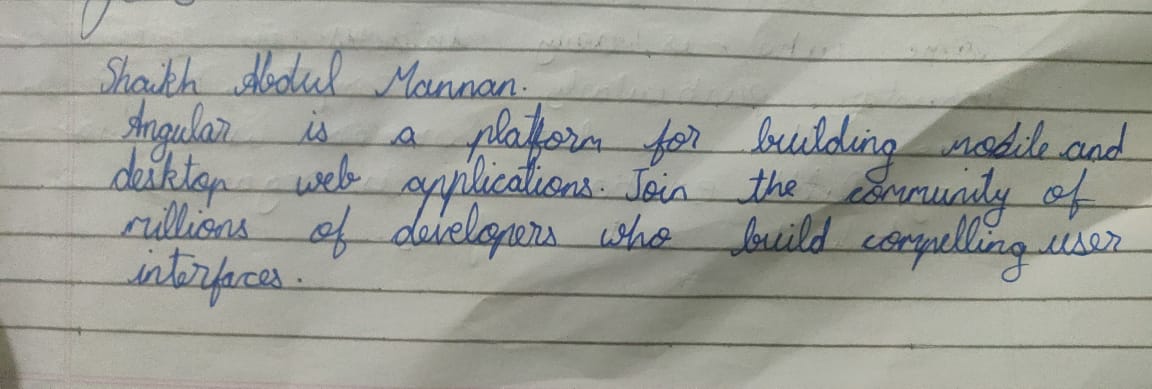 Shaikh Abdul Mannan.
Angular is a platform for building mobile and
desktop web applications. Join the community of
millions of developers who build compelling user
interfaces.